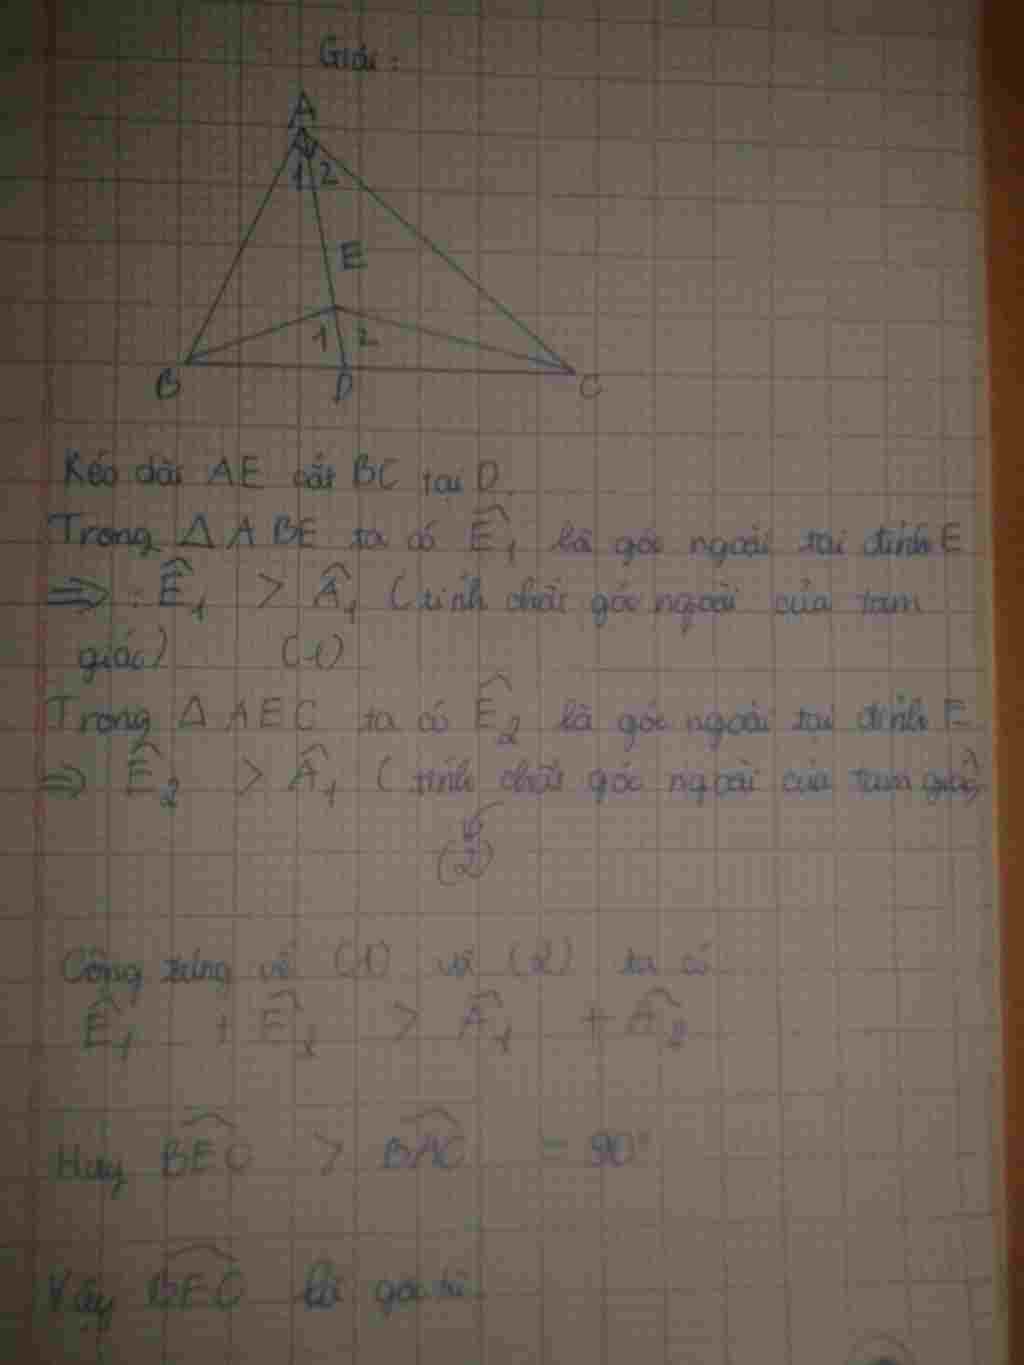 Giải:
A
1 2
E
1 2
B D C
Kéo dài AE cắt BC tại D.
Trong Δ ABE ta có Ê₁ là góc ngoài tại đỉnh E
⇒ : Ê₁ > Â₁ (tính chất góc ngoài của tam
giác) (1)
Trong Δ AEC ta có Ê₂ là góc ngoài tại đỉnh E
⇒ Ê₂ > Â₁ (tính chất góc ngoài của tam giác)
(2)
Cộng từng vế (1) và (2) ta có
Ê₁ + Ê₂ > Â₁ + Â₂
Hay \widehat{BEC} > \widehat{BAC} = 90°
Vậy \widehat{BEC} là góc tù